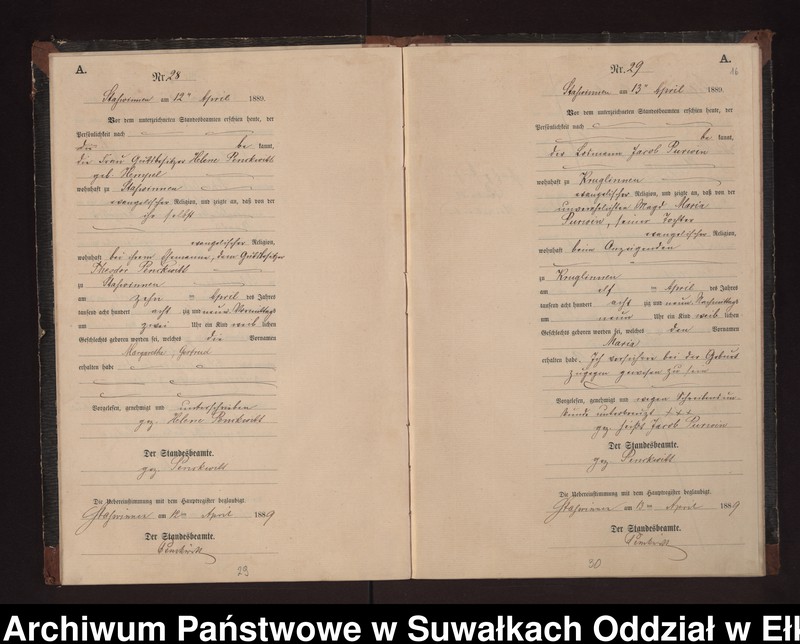 A.
Nr. 28
am 12ten April 1889.
Vor dem unterzeichneten Standesbeamten erschien heute, der
Persönlichkeit nach
be kannt,
die Frau Gutsbesitzer Helene Penckwitt
geb. Hempel
wohnhaft zu
evangelischer Religion, und zeigte an, daß von der
ihr selbst
evangelischer Religion,
wohnhaft bei ihrem Ehemanne, dem Gutsbesitzer
Theodor Penckwitt
zu
am zehn ten April des Jahres
tausend acht hundert acht zig und neun Vormittags
um zwei Uhr ein Kind weib lichen
Geschlechts geboren worden sei, welches die Vornamen
Margarethe Gertrud
erhalten habe
Vorgelesen, genehmigt und unterschrieben
gez. Helene Penckwitt
Der Standesbeamte.
gez. Penckwitt
Die Uebereinstimmung mit dem Hauptregister beglaubigt.
am 12ten April 1889
Der Standesbeamte.
Penckwitt
29
A.
16
Nr. 29
am 13ten April 1889.
Vor dem unterzeichneten Standesbeamten erschien heute, der
Persönlichkeit nach
be kannt,
der Losmann Jacob
wohnhaft zu Kruglinnen
evangelischer Religion, und zeigte an, daß von der
unverehelichten Magd Maria
seiner Tochter
evangelischer Religion,
wohnhaft beim Anzeigenden
zu Kruglinnen
am elf ten April des Jahres
tausend acht hundert acht zig und neun Nachmittags
um neun Uhr ein Kind weib lichen
Geschlechts geboren worden sei, welches den Vornamen
Maria
erhalten habe. Ich versichere bei der Geburt
zugegen gewesen zu sein
Vorgelesen, genehmigt und wegen Schreibensun-
kunde unterkreuzt + + +
gez. Jacob
Der Standesbeamte.
gez. Penckwitt
Die Uebereinstimmung mit dem Hauptregister beglaubigt.
am 13ten April 1889
Der Standesbeamte.
Penckwitt
30
Archiwum Państwowe w Suwałkach Oddział w Eł